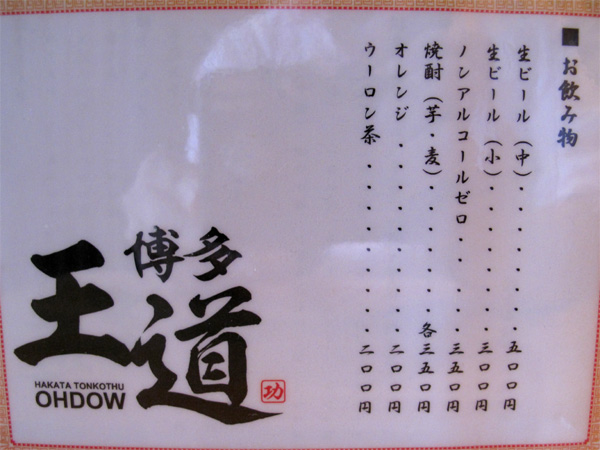 ■お飲み物
生ビール(中)・・・・・・・・五〇〇円
生ビール(小)・・・・・・・・三〇〇円
ノンアルコールゼロ・・・・・三五〇円
焼酎(芋・麦)・・・・・・・各三五〇円
オレンジ・・・・・・・・・・二〇〇円
ウーロン茶・・・・・・・・・二〇〇円
博多
王道
HAKATA TONKOTHU
OHDOW
功